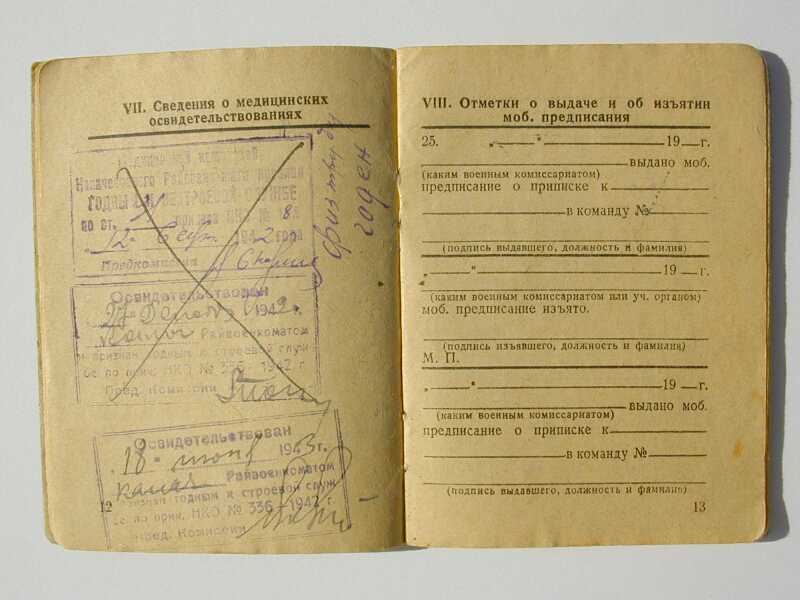 VII. Сведения о медицинских
освидетельствованиях
физически
годен
комиссией
Райвоенкомата
ГОДНЫМ К СТРОЕВОЙ СЛУЖБЕ
по ст. приказа НКО №
12 1942 года
Предкомиссии
Освидетельствован
27 Декабря 1942 г.
Райвоенкоматом
и признан годным к строевой служ
бе по прик. НКО № 336 1942 г
Пред. Комиссии
Освидетельствован
18 1943 г.
Райвоенкоматом
признан годным к строевой служ
бе по прик. НКО № 336-1942 г
Пред. Комиссии
12
VIII. Отметки о выдаче и об изъятии
моб. предписания
25. „ “ 19 г.
выдано моб.
(каким военным комиссариатом)
предписание о приписке к
в команду №
(подпись выдавшего, должность и фамилия)
„ “ 19 г.
(каким военным комиссариатом или уч. органом)
моб. предписание изъято.
(подпись изъявшего, должность и фамилия)
М. П.
„ “ 19 г.
выдано моб.
(каким военным комиссариатом)
предписание о приписке к
в команду №
(подпись выдавшего, должность и фамилия)
13